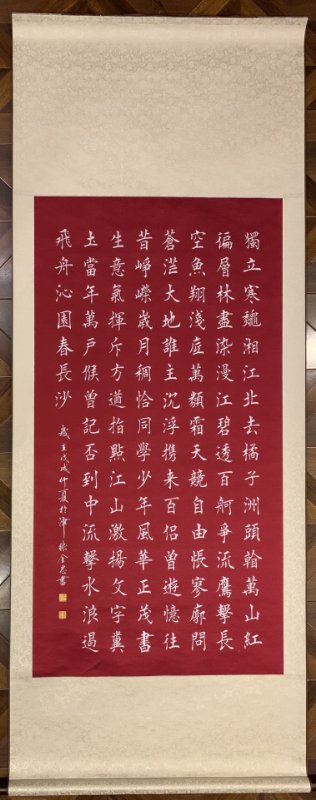 獨立寒龝湘江北去橘子洲頭看萬山紅
徧層林盡染漫江碧透百舸爭流鷹擊長
空魚翔淺底萬類霜天競自由悵寥廓問
蒼茫大地誰主沉浮携来百侣曾遊憶往
昔崢嶸歲月稠恰同學少年風華正茂書
生意氣揮斥方遒指點江山激揚文字糞
土當年萬户候曾記否到中流擊水浪遏
飛舟沁園春長沙
歲在戊戌仲夏於津 金 書